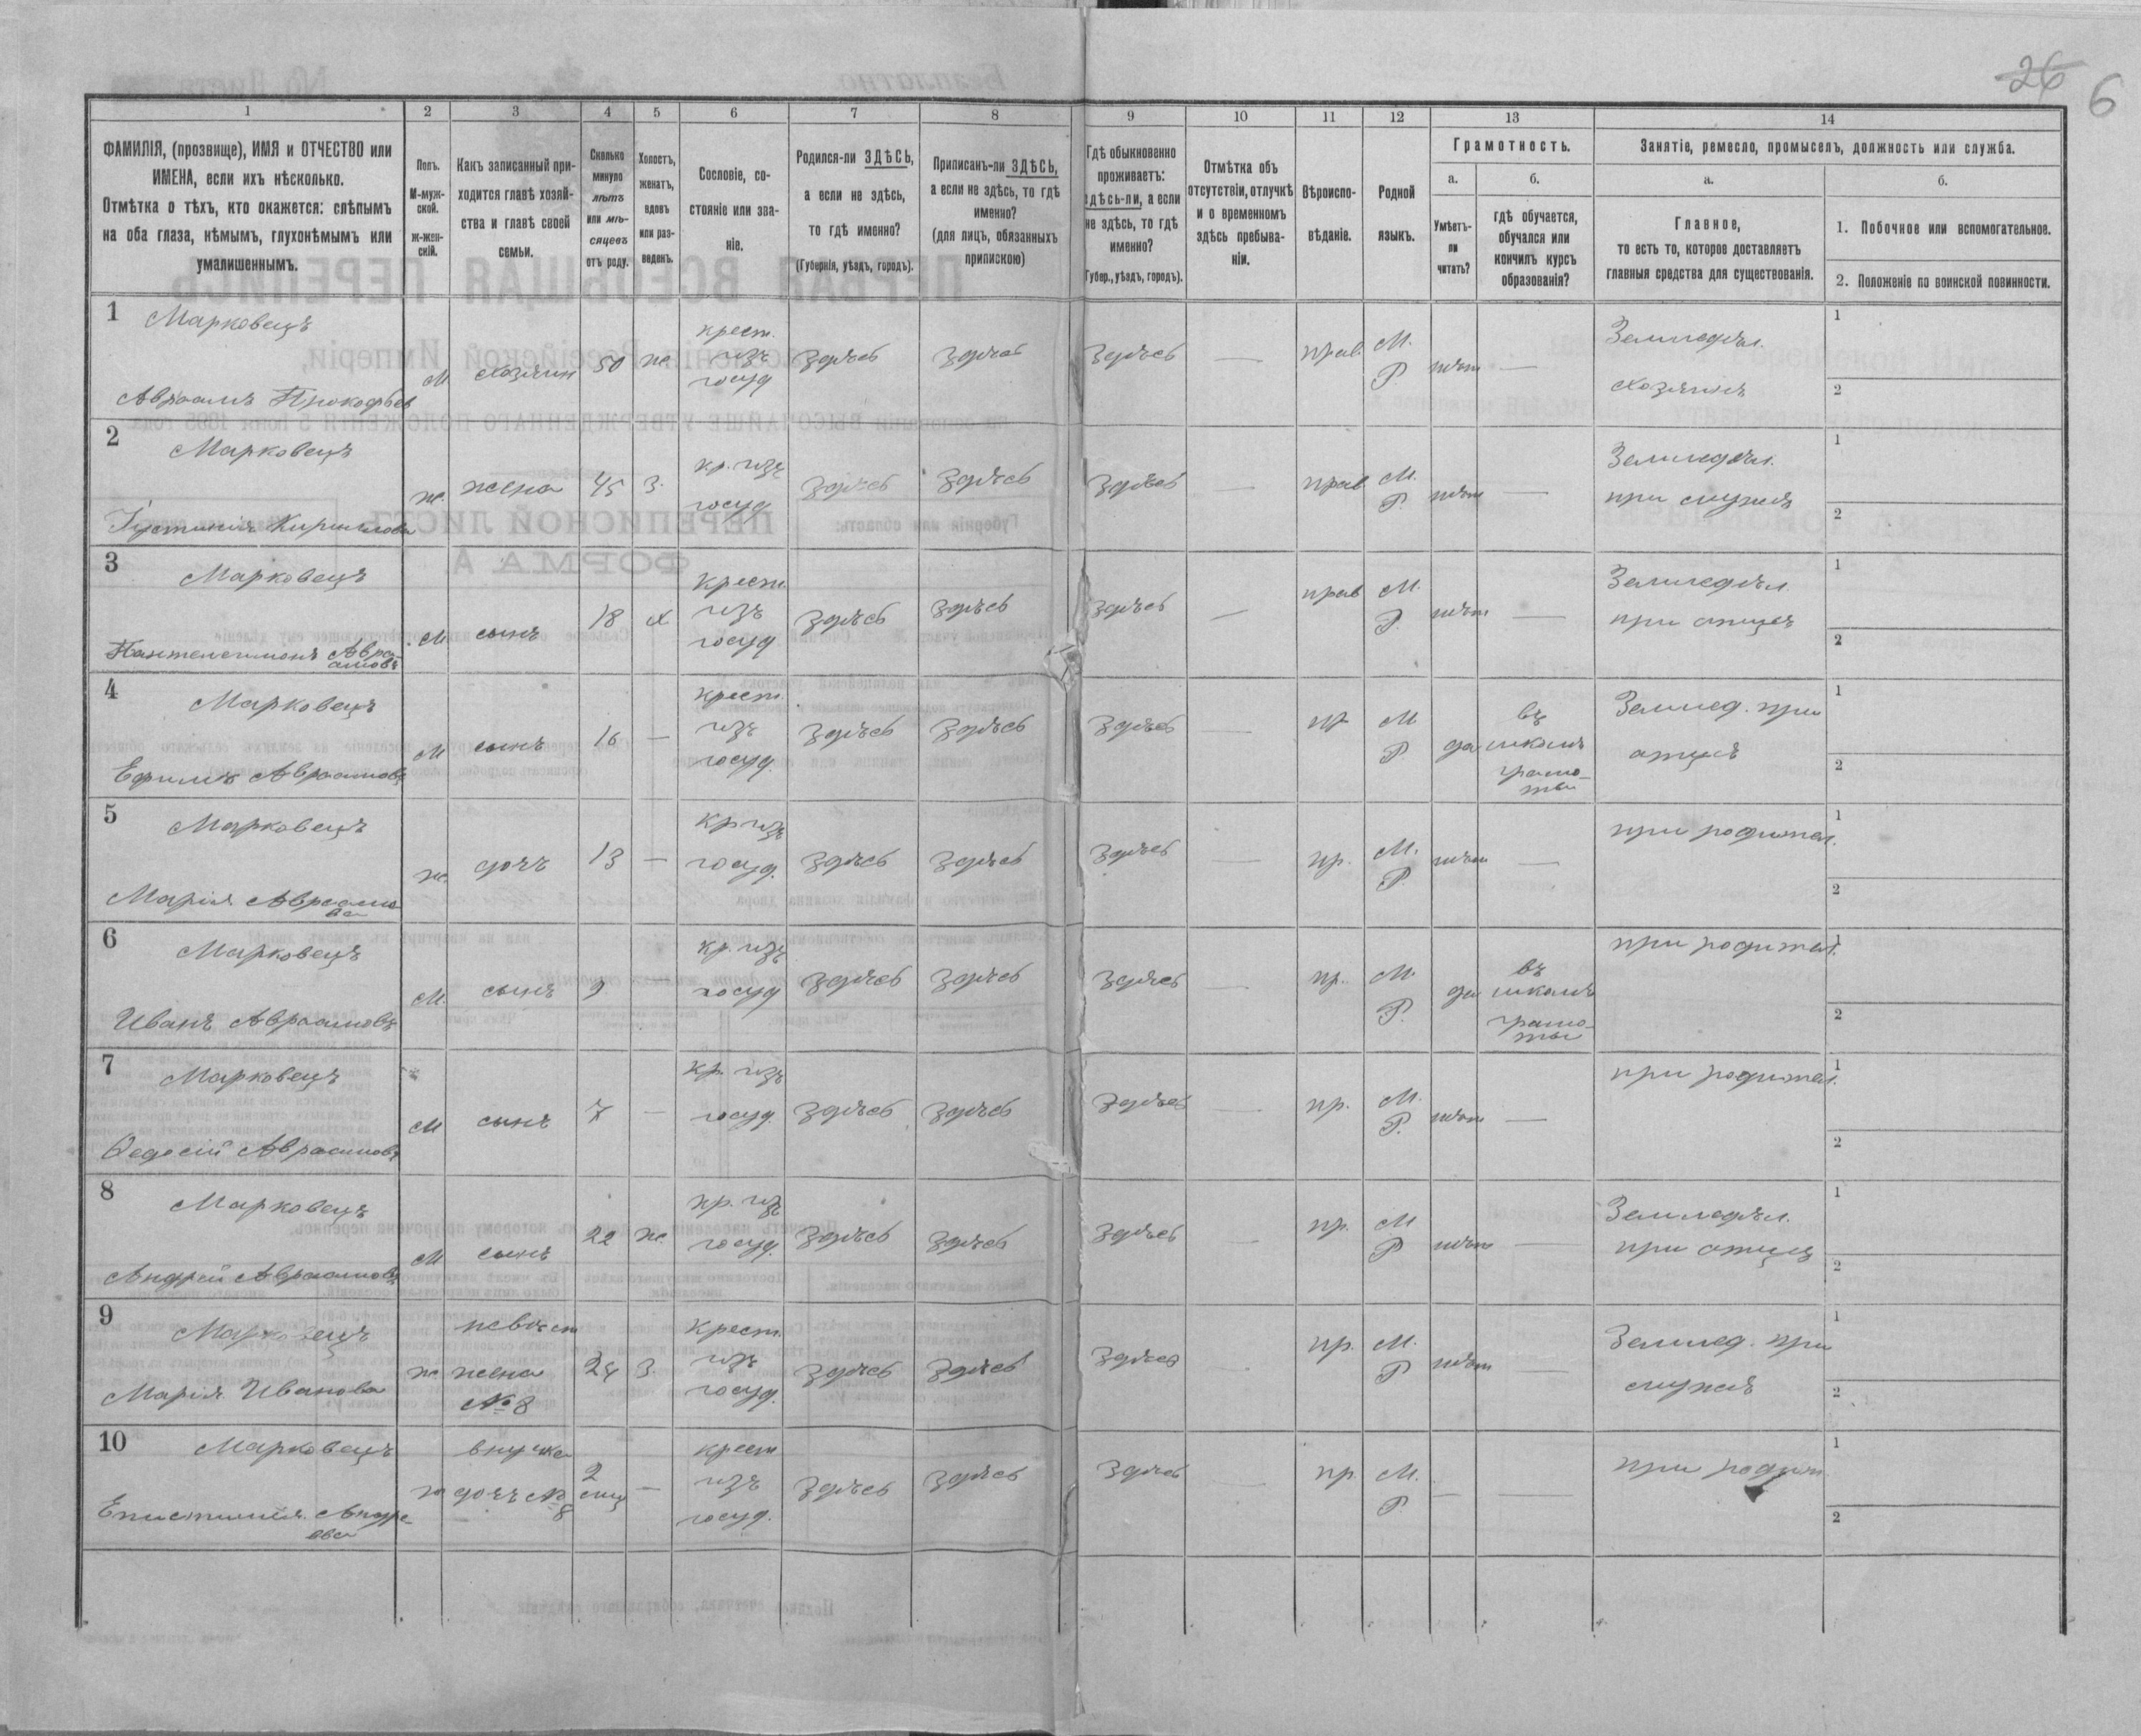 26 6
1 2 3 4 5 6 7 8 9 10 11 12 13 14
ФАМИЛІЯ, (прозвище), ИМЯ и ОТЧЕСТВО или ИМЕНА, если ихъ нѣсколько.
Отмѣтка о тѣхъ, кто окажется: слѣпымъ на оба глаза, нѣмымъ, глухонѣмымъ или умалишеннымъ.
Полъ. М-муж-ской. ж-жен-скій.
Какъ записанный при-ходится главѣ хозяй-ства и главѣ своей семьи.
Сколько минуло лѣтъ или мѣ-сяцевъ отъ роду.
Холостъ, женатъ, вдовъ или раз-веденъ.
Сословіе, со-стояніе или зва-ніе.
Родился-ли ЗДѢСЬ, а если не здѣсь, то гдѣ именно? (Губернія, уѣздъ, городъ).
Приписанъ-ли ЗДѢСЬ, а если не здѣсь, то гдѣ именно? (для лицъ, обязанныхъ припискою)
Гдѣ обыкновенно проживаетъ: здѣсь-ли, а если не здѣсь, то гдѣ именно? (Губер., уѣздъ, городъ).
Отмѣтка объ отсутствіи, отлучкѣ и о временномъ здѣсь пребыва-ніи.
Вѣроиспо-вѣданіе.
Родной языкъ.
Грамотность.
а. Умѣетъ-ли читать?
б. гдѣ обучается, обучался или кончилъ курсъ образованія?
Занятіе, ремесло, промыселъ, должность или служба.
а. Главное, то есть то, которое доставляетъ главныя средства для существованія.
б. 1. Побочное или вспомогательное.
2. Положеніе по воинской повинности.
1 Марковецъ Авраамъ Прокофьев М хозяин 50 ж. крест. изъ госуд здѣсь здѣсь здѣсь — прав. М. Р. нѣт — Земледѣл. хозяинъ 1 2
2 Марковецъ Густинія Кирилова ж. жена 45 З. кр. изъ госуд здѣсь здѣсь здѣсь — прав М. Р. нѣт — Земледѣл. при мужѣ 1 2
3 Марковецъ Пантелеимонъ Авра-амовъ М сынъ 18 х крест. изъ госуд здѣсь здѣсь здѣсь — прав М. Р. нѣт — Земледѣл. при отцѣ 1 2
4 Марковецъ Ефимъ Авраамовъ М сынъ 16 — крест. изъ госуд. здѣсь здѣсь здѣсь — пр М Р да въ школѣ грамо-ты Землед. при отцѣ 1 2
5 Марковецъ Марія Авраамо ва ж. дочъ 13 — кр изъ госуд. здѣсь здѣсь здѣсь — пр. М. Р. нѣт — при родител. 1 2
6 Марковецъ Иванъ Авраамовъ М. сынъ 9 кр. изъ госуд здѣсь здѣсь здѣсь — пр. М. Р. да въ школѣ грамо-ты при родител. 1 2
7 Марковецъ Ѳедосій Авраамовъ М сынъ 7 — кр. изъ госуд. здѣсь здѣсь здѣсь — пр. М. Р. нѣт — при родител. 1 2
8 Марковецъ Андрей Авраамовъ М сынъ 22 ж. кр. изъ госуд. здѣсь здѣсь здѣсь — пр. М Р нѣт — Земледѣл. при отцѣ 1 2
9 Марковецъ Марія Иванова ж невѣст жена №8 24 З. крест. изъ госуд. здѣсь здѣсь здѣсь — пр. М. Р нѣт — Землед. при мужѣ 1 2
10 Марковецъ Епистимія Андре-ева ж внучка дочъ № 8 2 мц — крест изъ госуд. здѣсь здѣсь здѣсь — пр. М. Р. — — при родит. 1 2